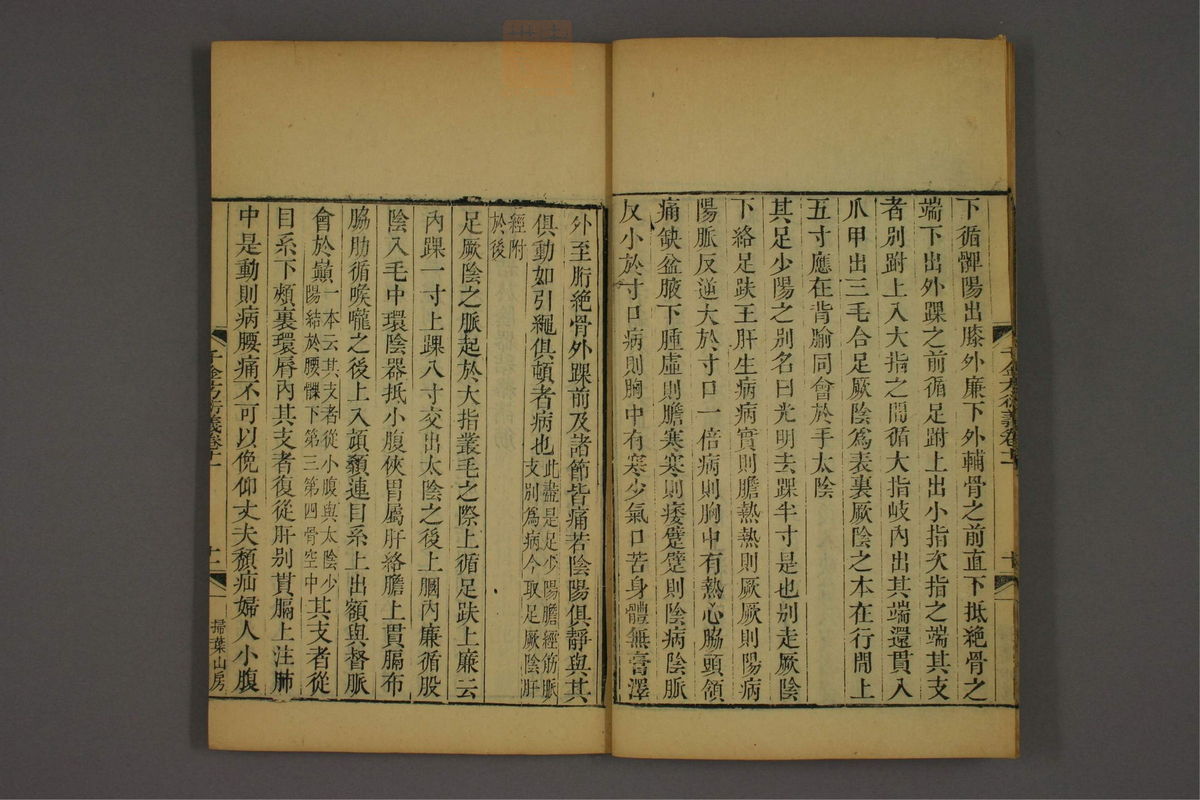 下循髀陽出膝外廉下外輔骨之前直下抵絶骨之
端下出外踝之前循足跗上出小指次指之端其支
者别跗上入大指之間循大指岐内出其端還貫入
爪甲出三毛合足厥陰爲表裏厥陰之本在行間上
五寸應在背腧同會於手太陰
其足少陽之别名曰光明去踝半寸是也别走厥陰
下絡足趺主肝生病病實則膽熱熱則厥厥則陽病
陽脈反逆大於寸口一倍病則胸中有熱心脇頭頷
痛缺盆腋下腫虛則膽寒寒則痿躄躄則陰病陰脈
反小於寸口病則胸中有寒少氣口苦身體無膏澤
外至胻絶骨外踝前及諸節皆痛若陰陽俱靜與其
俱動如引繩俱頓者病也此盡是足少陽膽經筋脈支别爲病今取足厥陰肝
經附於後
足厥陰之脈起於大指叢毛之際上循足趺上廉云
内踝一寸上踝八寸交出太陰之後上膕内廉循股
陰入毛中環陰器抵小腹俠胃屬肝絡膽上貫膈布
脇肋循喉嚨之後上入頏顙連目系上出額與督脈
會於巔一本云其支者從小腹與太陰少陽結於腰髁下第三第四骨空中其支者從
目系下頰裏環脣内其支者復從肝别貫膈上注肺
中是動則病腰痛不可以俛仰丈夫㿗疝婦人小腹
千金方衍義卷十一
十一
掃葉山房